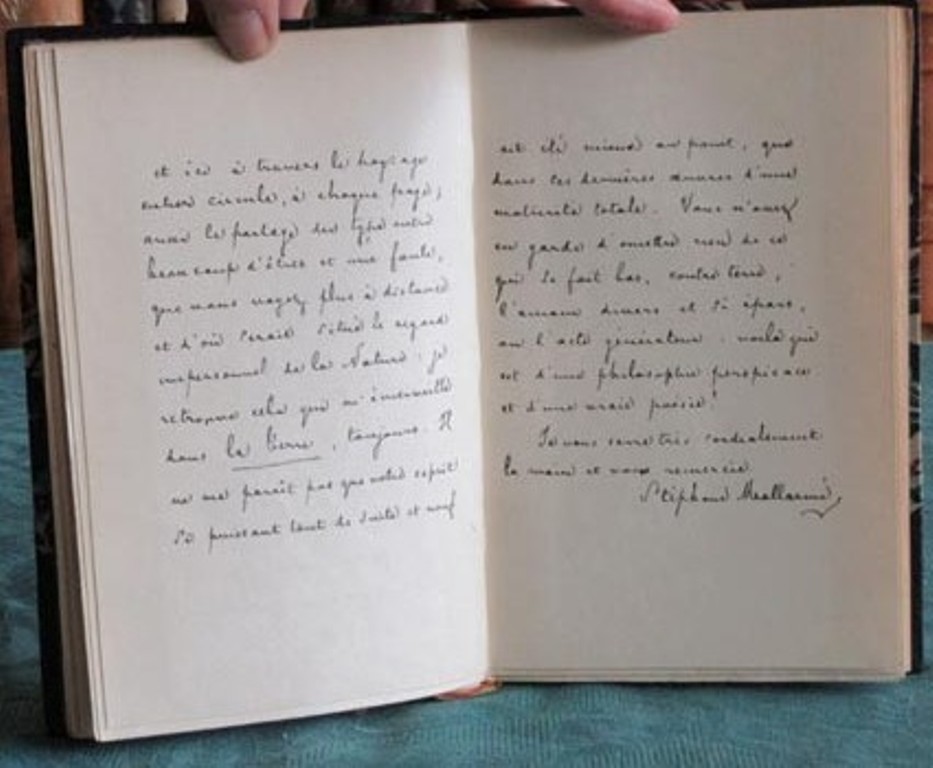 et ici à travers le paysage
entier circule, à chaque page,
aussi le partage du type entre
beaucoup d'êtres et une foule,
que vous voyez plus à distance
et d'où serait situé le regard
impersonnel de la Nature : je
retrouve cela qui m'émerveille
dans la Terre, toujours. Il
ne me paraît pas que votre esprit
si puissant tout de suite et neuf
ait été mieux au point, que
dans ces dernières œuvres d'une
maturité totale. Vous n'avez
eu garde d'omettre rien de ce
qui se fait bas, contre terre,
l'amour divers et si épars,
ou l'acte générateur : voilà qui
est d'une philosophie perspicace
et d'une vraie poésie!
Je vous serre très cordialement
la main et vous remercie
Stéphane Mallarmé